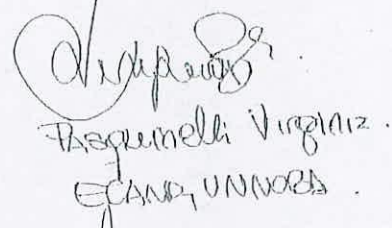 Pasquinelli Virginia.
ECANA, UNNOBA.